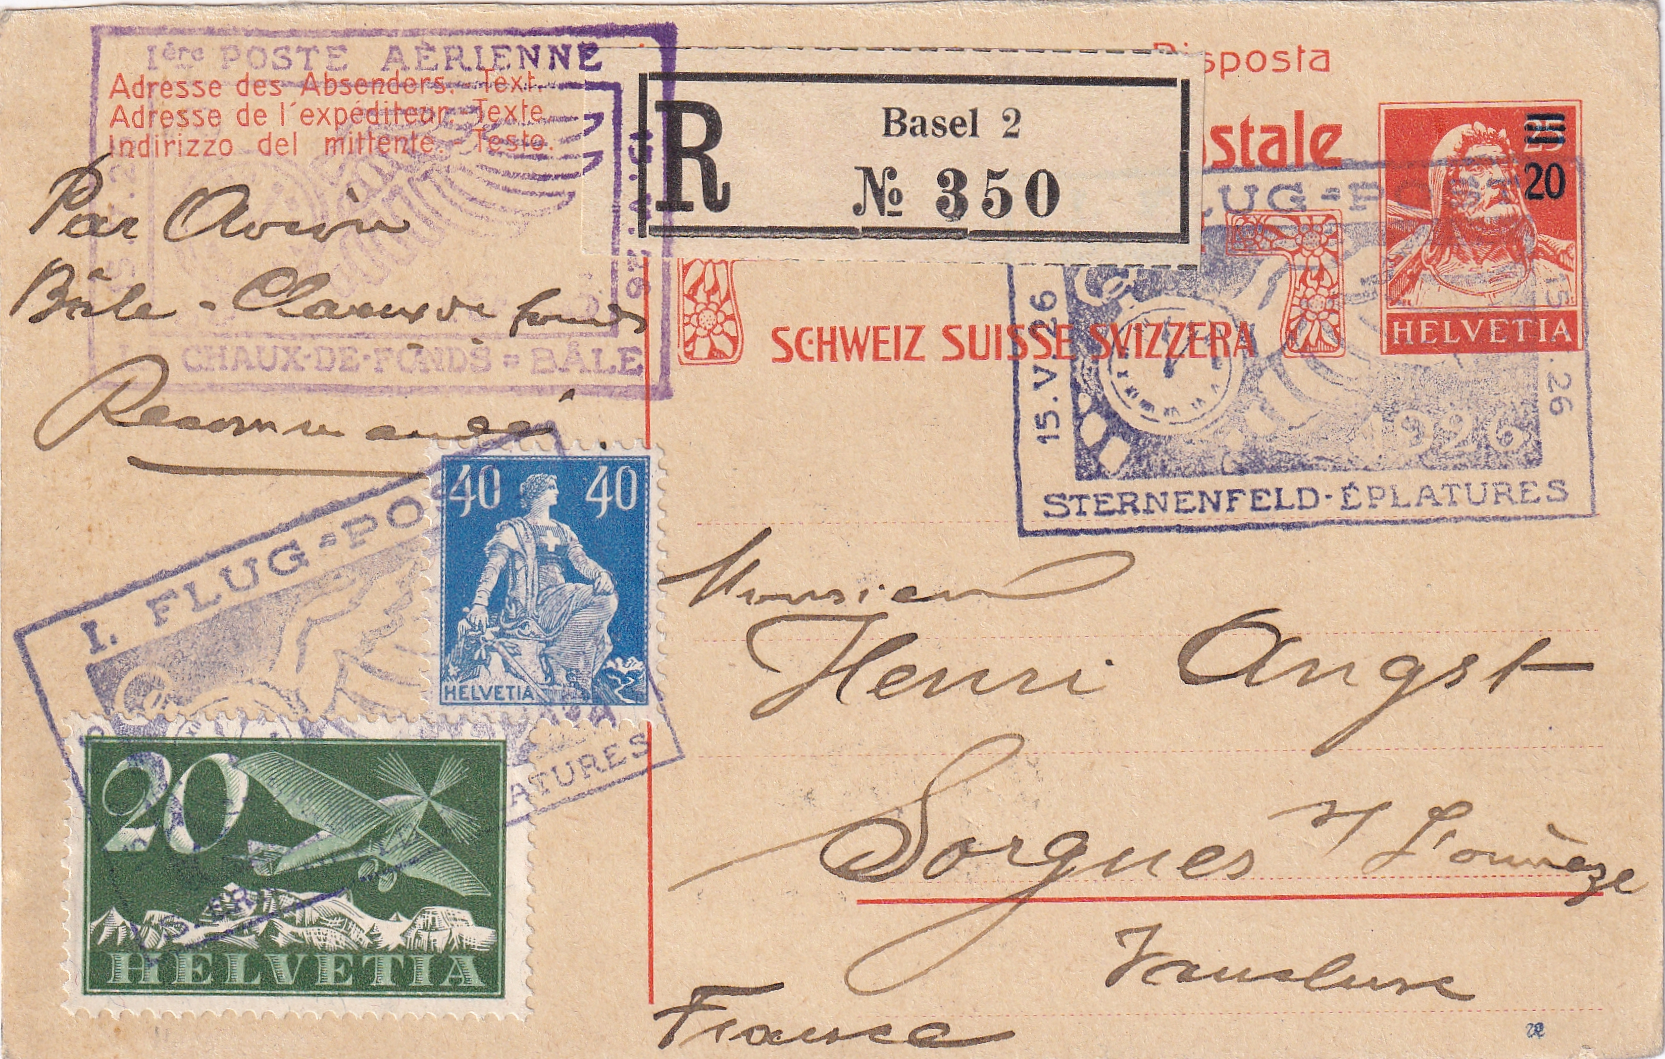 Ière POSTE AÉRIENNE
Adresse des Absenders. - Text.
Adresse de l'expéditeur. - Texte.
Indirizzo del mittente. - Testo.
CHAUX-DE-FONDS = BÂLE
Par Avion
Bâle - Chaux de fonds
Recommandé
R
Basel 2
№ 350
Risposta
stale
25
20
HELVETIA
SCHWEIZ SUISSE SVIZZERA
FLUG=POST
15.V.26
15 .26
1926
STERNENFELD-ÉPLATURES
I. FLUG=POS
ATURES
40 40
HELVETIA
20
HELVETIA
Monsieur
Henri Angst
Sorgues s/ L'ouvèze
Vaucluse
France